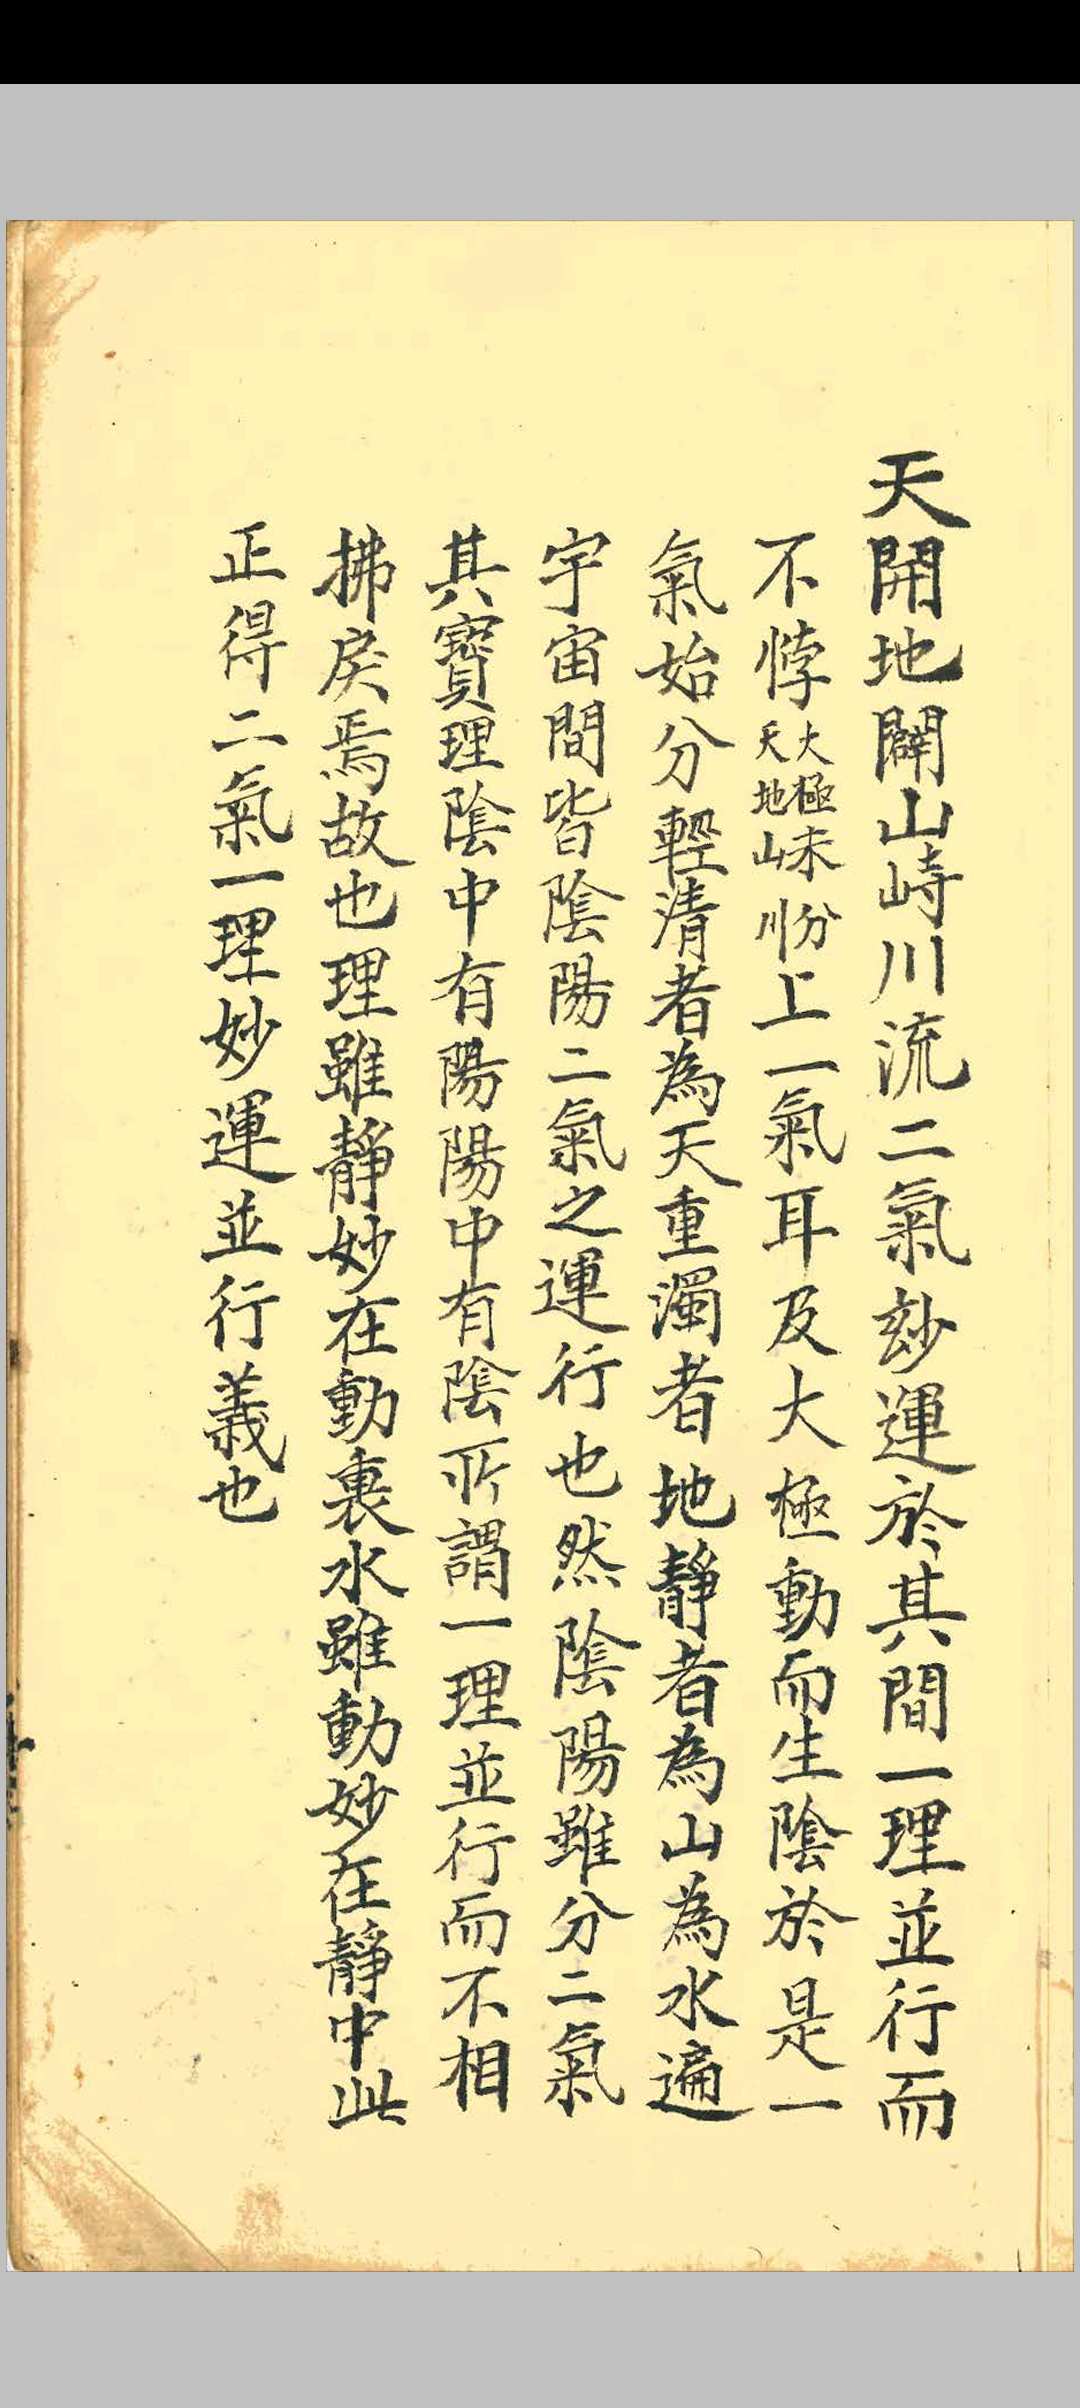 天開地闢山峙川流二氣玅運於其間一理並行而
不悖大極未分天地山川上一氣耳及大極動而生陰於是一
氣始分輕清者為天重濁者地靜者為山為水遍
宇宙間皆陰陽二氣之運行也然陰陽雖分二氣
其寶理陰中有陽陽中有陰所謂一理並行而不相
拂戾焉故也理雖靜妙在動裏水雖動妙在靜中此
正得二氣一理妙運並行義也